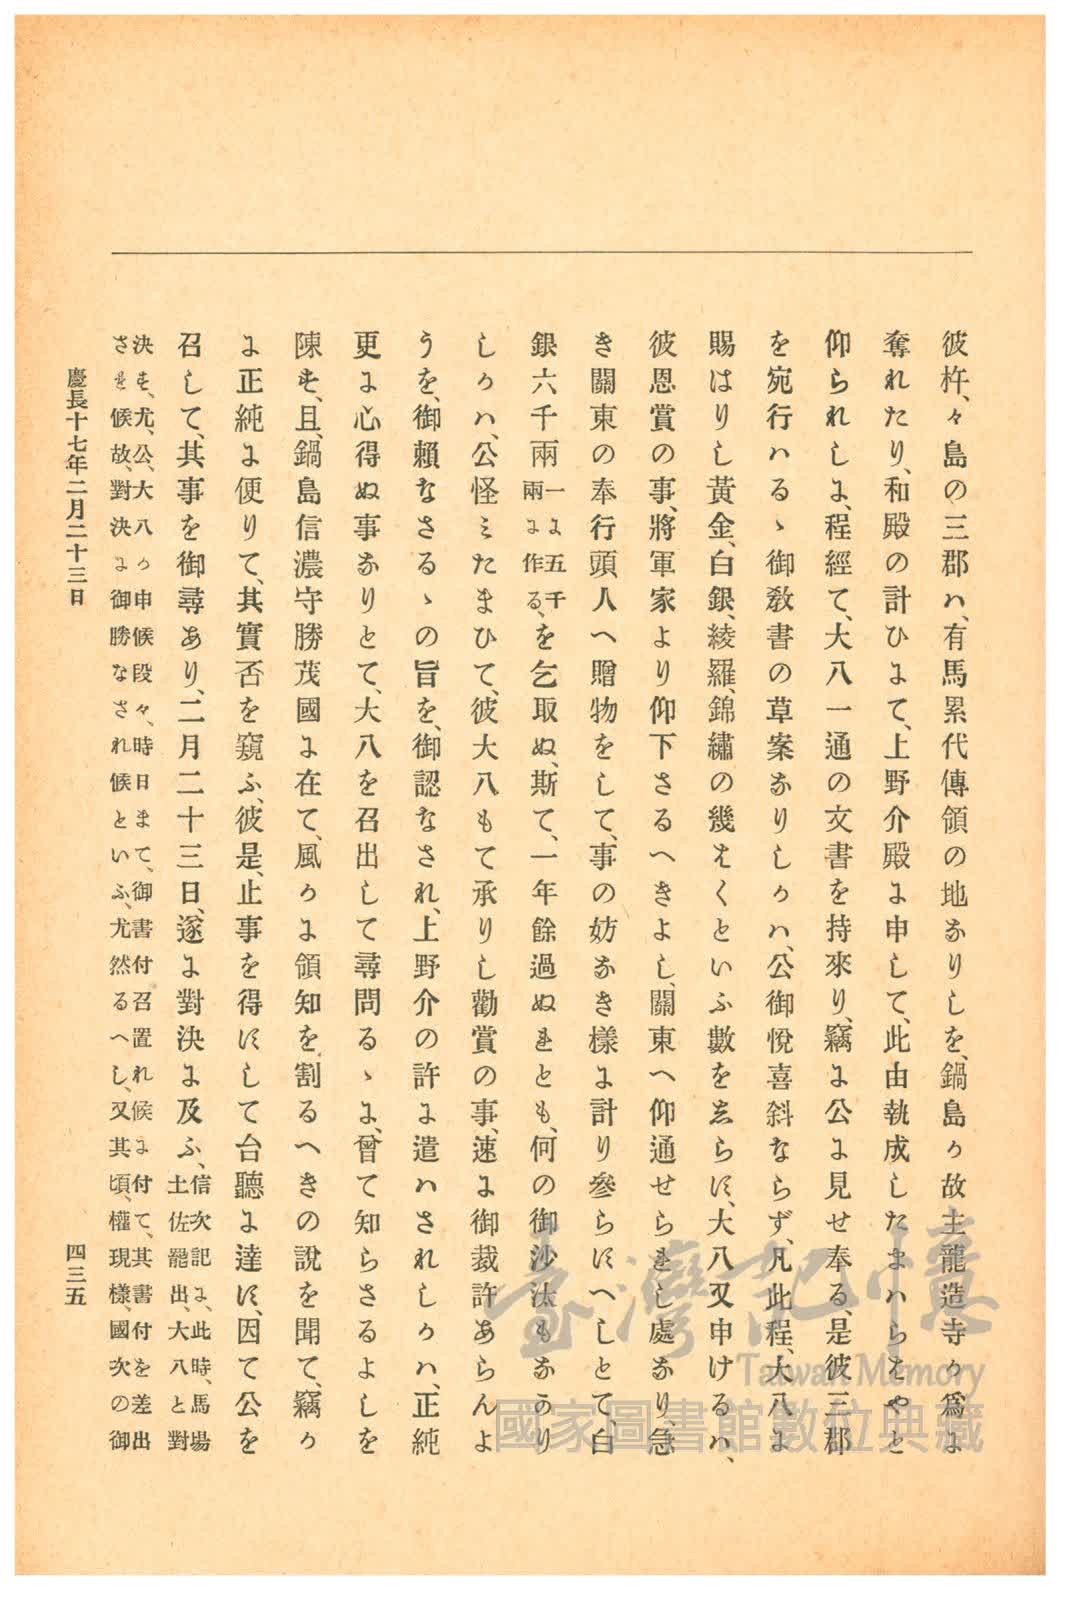 彼杵、々島の三郡ハ、有馬累代傳領の地なりしを、鍋島か故主龍造寺か爲に
奪れたり、和殿の計ひにて、上野介殿に申して、此由執成したまハらはやと
仰られしに、程經て、大八一通の文書を持來り、竊に公に見せ奉る、是彼三郡
を宛行ハるゝ御教書の草案なりしかハ、公御悅喜斜ならず、凡此程、大八に
賜はりし黃金、白銀、綾羅、錦繡の幾はくといふ數をしらす、大八又申けるハ、
彼恩賞の事、將軍家より仰下さるへきよし、關東へ仰通せられし處なり、急
き關東の奉行頭人へ贈物をして、事の妨なき樣に計り參らすへしとて、白
銀六千兩一に五千兩に作る、を乞取ぬ、斯て、一年餘過ぬれとも、何の御沙汰もなかり
しかハ、公怪ミたまひて、彼大八もて承りし勸賞の事、速に御裁許あらんよ
うを、御賴なさるゝの旨を、御認なされ、上野介の許に遣ハされしかハ、正純
更に心得ぬ事なりとて、大八を召出して尋問るゝに、曾て知らさるよしを
陳す、且、鍋島信濃守勝茂國に在て、風かに領知を割るへきの說を聞て、竊か
に正純に便りて、其實否を窺ふ、彼是、止事を得すして台聽に達す、因て公を
召して、其事を御尋あり、二月二十三日、遂に對決に及ふ、信次記に、此時、馬場土佐罷出、大八と對
決す、尤、公、大八か申候段々、時日まて、御書付召置れ候に付て、其書付を差出
され候故、對決に御勝なされ候といふ、尤然るへし、又其頃、權現樣、國次の御
慶長十七年二月二十三日
四三五
臺灣記憶
Taiwan Memory
國家圖書館數位典藏